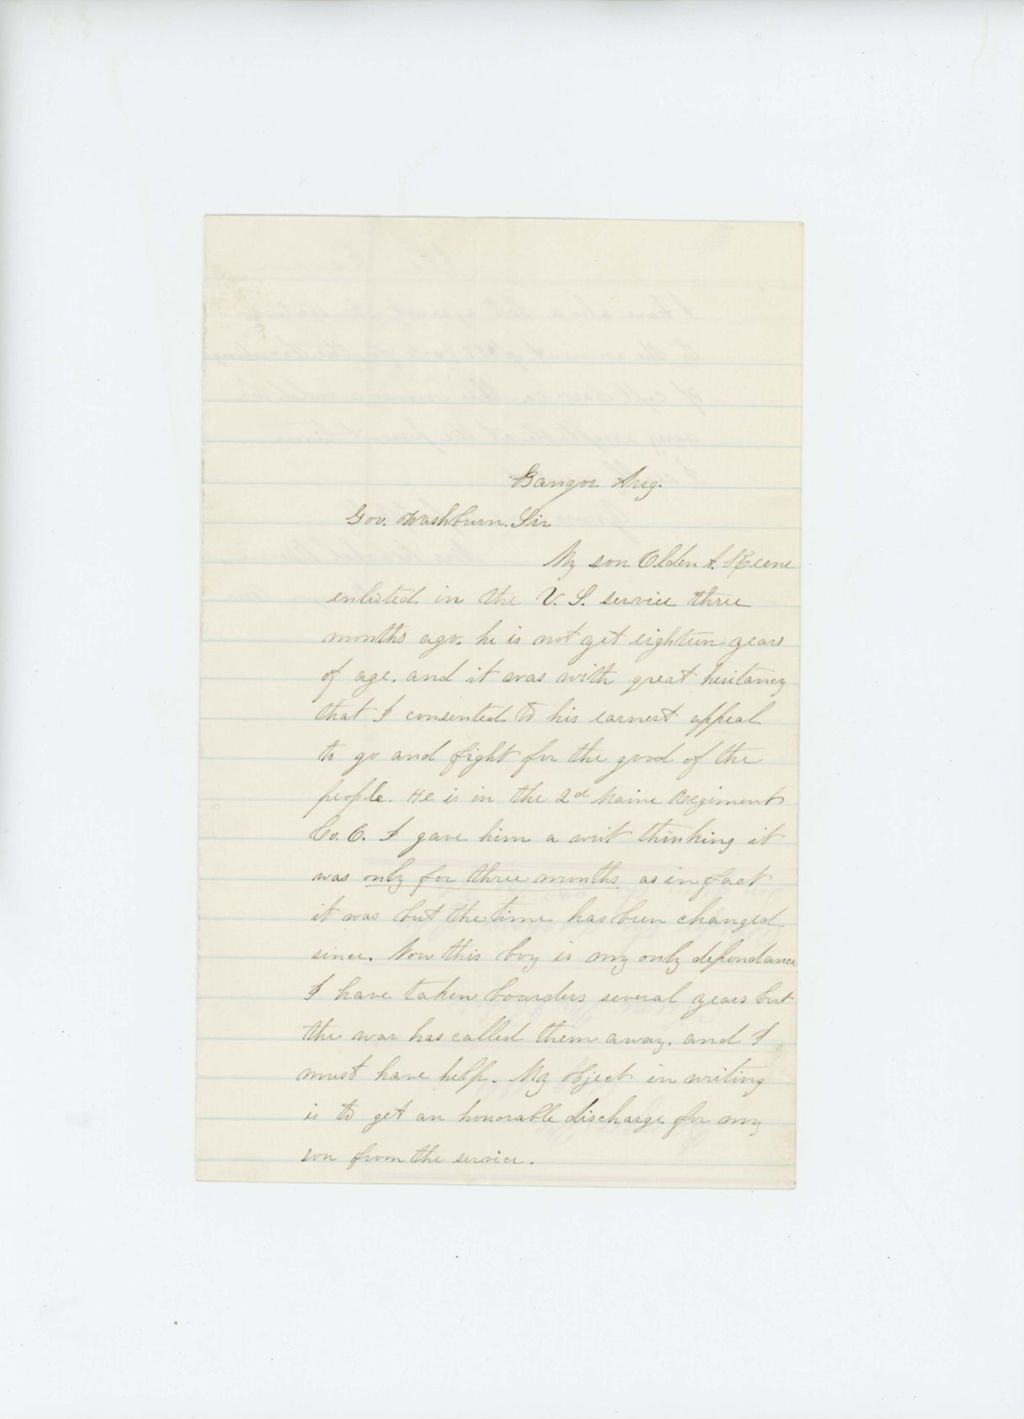 Bangor Aug.
Gov. Washburn. Sir
My son Olden A. Keene
enlisted in the U. S. service three
months ago. he is not yet eighteen years
of age. and it was with great hesitancy
that I consented to his earnest appeal
to go and fight for the good of the
people. He is in the 2d Maine Regiment
Co. C. I gave him a writ thinking it
was only for three months as in fact
it was but the time has been changed
since. Now this boy is my only dependance
I have taken boarders several years but
the war has called them away. and I
must have help. My object in writing
is to get an honorable discharge for my
son from the service.